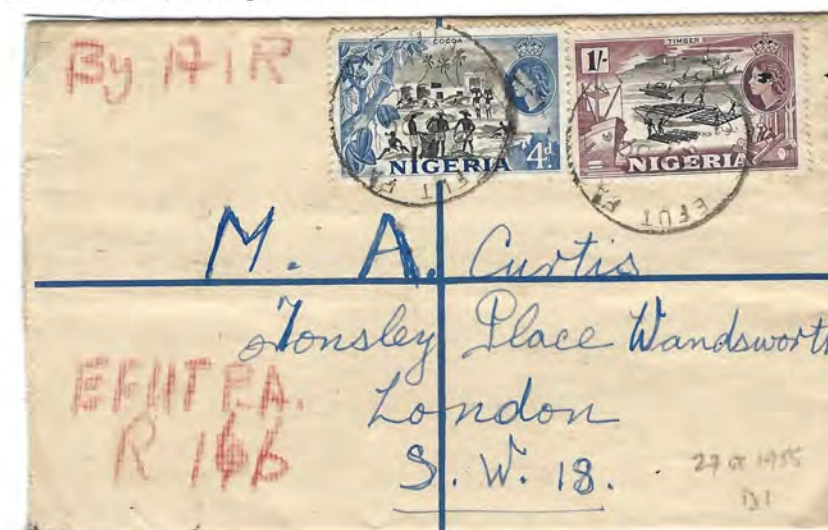 By AIR
COCOA
NIGERIA 4d.
TIMBER
1/-
NIGERIA
EFUT PA
EFUT PA
M. A. Curtis
Tonsley Place Wandsworth
London
S. W. 18.
EFUT P.A.
R 166
1955